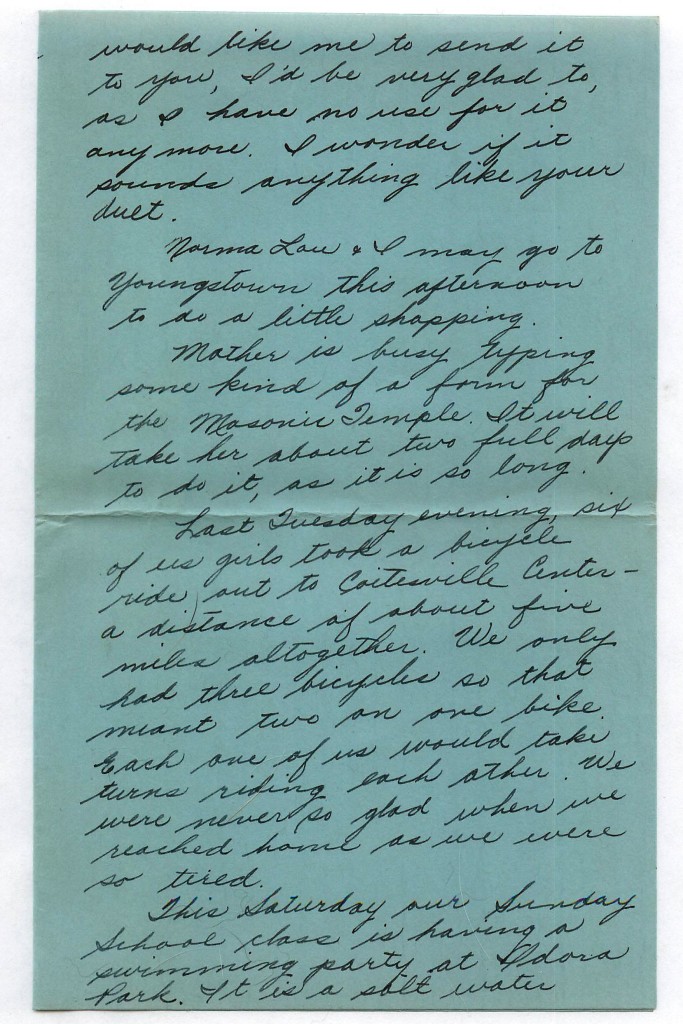 would like me to send it
to you, I'd be very glad to,
as I have no use for it
any more. I wonder if it
sounds anything like your
duet.
Norma Lou & I may go to
Youngstown this afternoon
to do a little shopping.
Mother is busy typing
some kind of a form for
the Masonic Temple. It will
take her about two full days
to do it, as it is so long.
Last Tuesday evening, six
of us girls took a bicycle
ride out to Coitesville Center-
a distance of about five
miles altogether. We only
had three bicycles so that
meant two on one bike.
Each one of us would take
turns riding each other. We
were never so glad when we
reached home as we were
so tired.
This Saturday our Sunday
School class is having a
swimming party at Idora
Park. It is a salt water